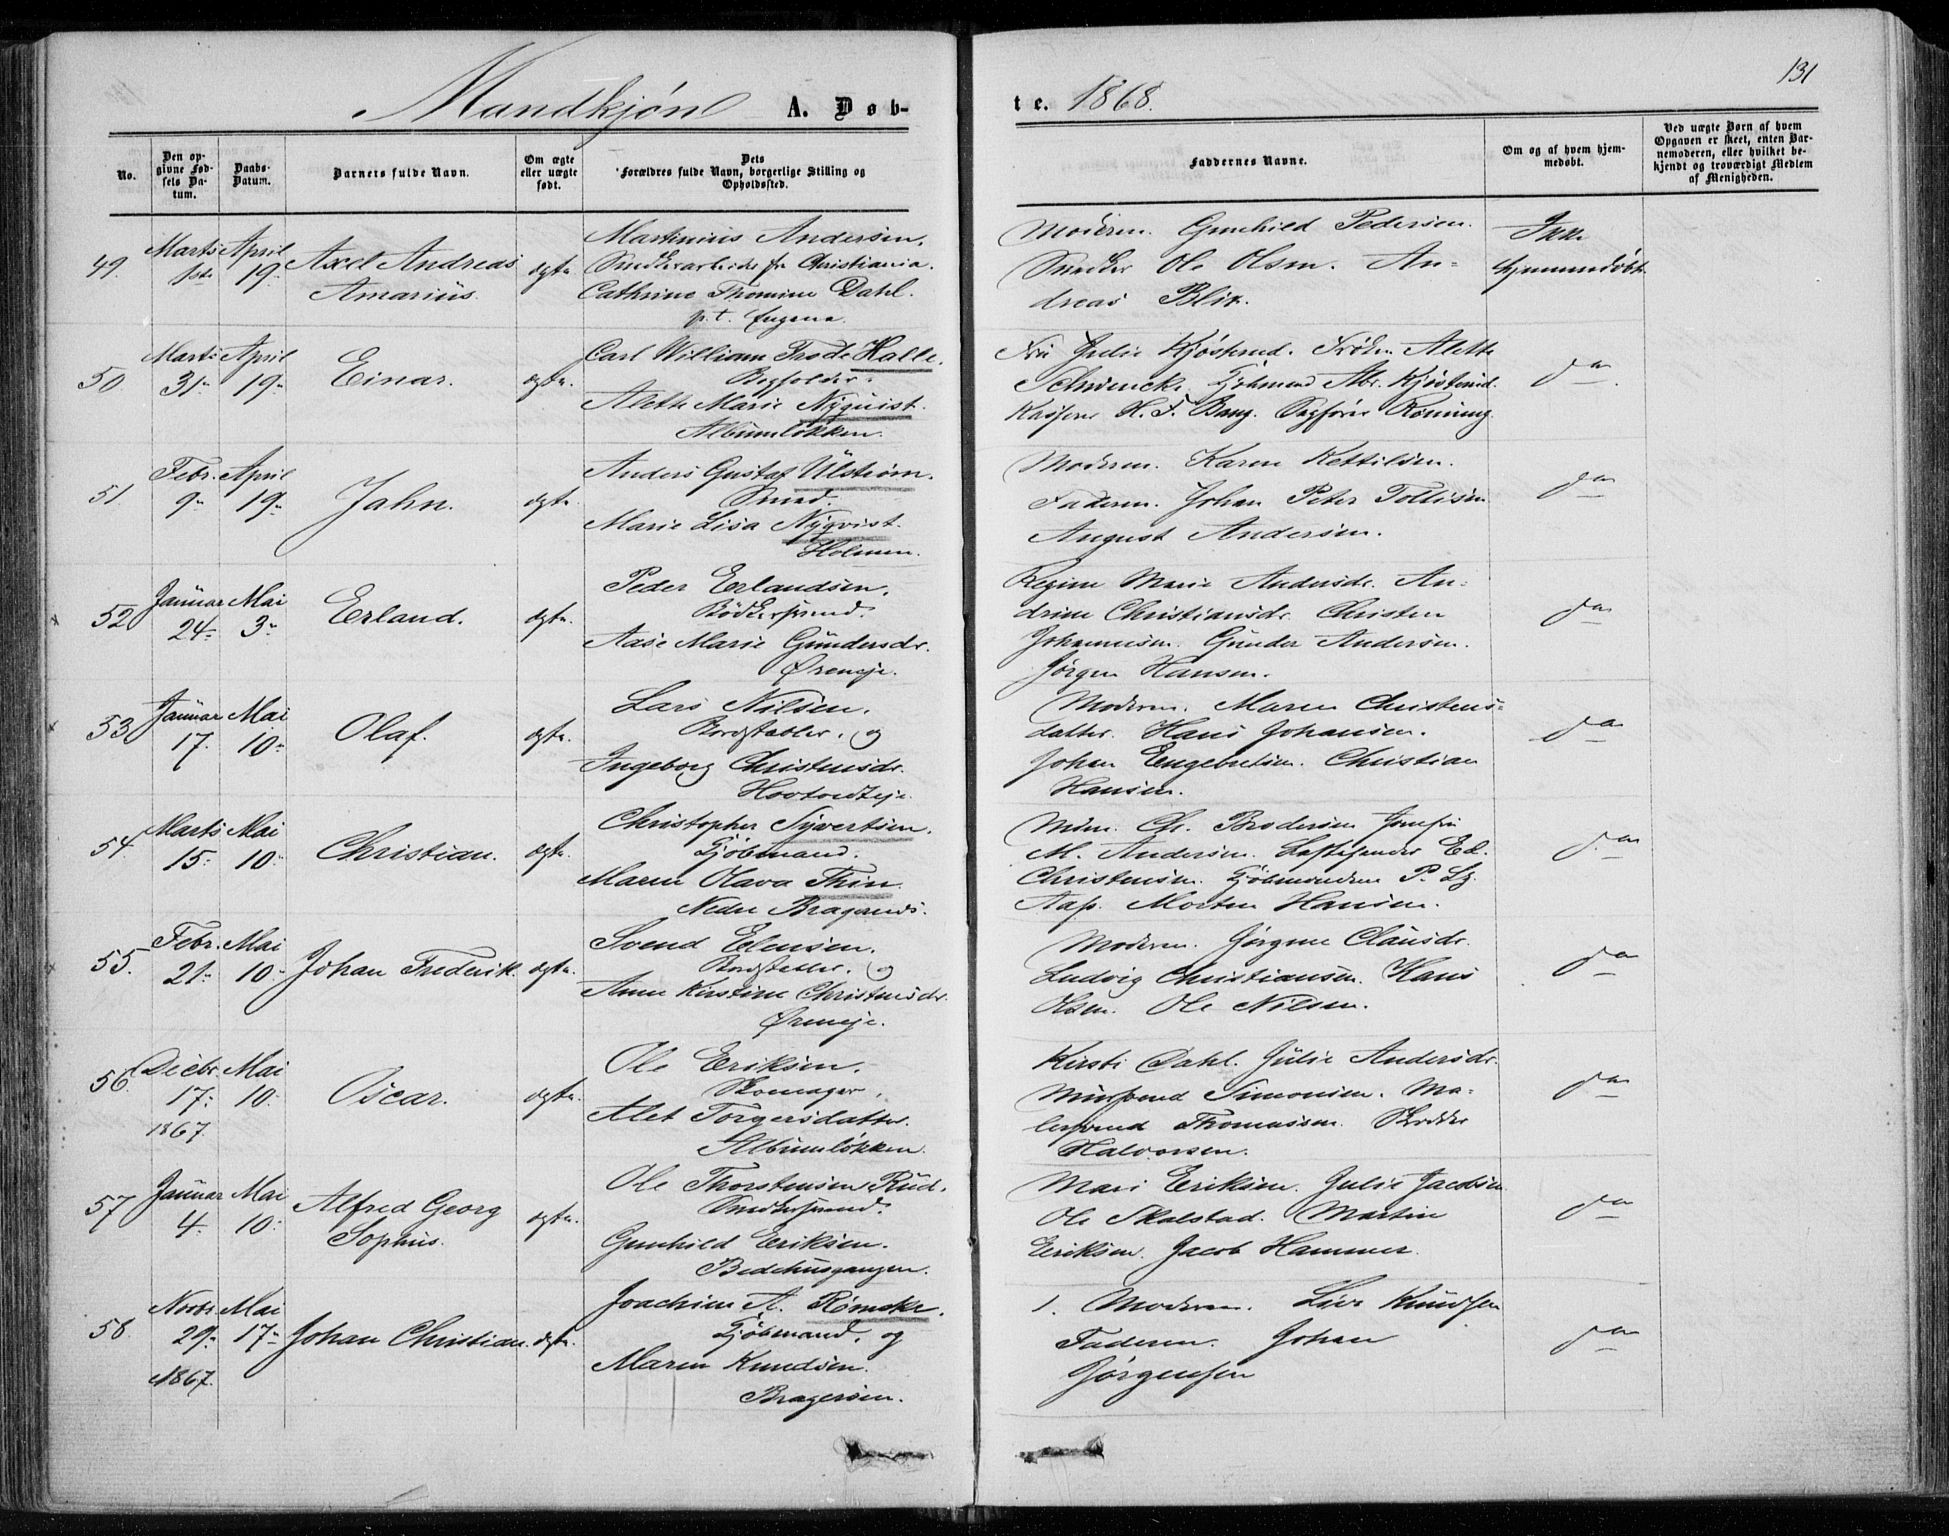 131
Mandkjøn A. Døb-
te. 1868.
No.
Den op-
givne Fød-
sels Da-
tum.
Daabs-
Datum.
Barnets fulde Navn.
Om ægte
eller uægte
født.
Dets
Forældres fulde Navn, borgerlige Stilling og
Opholdssted.
Faddernes Navne.
Om og af hvem hjem-
medøbt.
Ved uægte Børn af hvem
Opgaven er skeet, enten Bar-
nemoderen, eller hvilket be-
kjendt og troværdigt Medlem
af Menigheden.
49.
Marts
1ste
April
19.
Axel Andreas
Amarius.
ægte
Martinius Andersen.
Snedkerarbeider fr Christiania.
Cathrine Thomine Dahl.
p.t. Engene.
Moderen. Gunhild Pedersen.
Snedker Ole Olsen. An-
dreas Blix.
Ikke
hjemmedøbt
50
Marts
31.
April
19.
Einar.
ægte.
Carl William Frode Halle.
Bogholder.
Alette Marie Nyquist.
Albumløkken.
Fru Julie Kjøsterud. Frøken Alette
Schwencke. Kjøbmand Abr. Kjøsterud.
Kasserer H. F. Bang. Sagfører Rønning.
do
51.
Febr.
9.
April
19.
Jahn.
ægte.
Anders Gustaf Ulstrøm.
Smed
Marie Lisa Nyqvist.
Holmen.
Moderen. Karen Kettilsen.
Faderen. Johan Peter Tollisen
August Andersen.
do
52
Januar
24.
Mai
3.
Erland.
ægte.
Peder Erlandsen.
Bødkersvend.
Aase Marie Gundersdr.
Øreneje.
Regine Marie Andersdr. An-
drine Christiansdr. Christen
Johannesen. Gunder Andersen.
Jørgen Hansen.
do
53
Januar
17.
Mai
10.
Olaf.
ægte.
Lars Nilsen.
Bordstabler. og
Ingeborg Christensdr.
Moderen. Maren Christens-
datter. Hans Johansen.
Johan Engebretsen. Christian
Hansen.
do
54
Marts
15.
Mai
10.
Christian.
ægte.
Christopher Syvertsen.
Kjøbmand.
Maren Olava Thin.
Nedre Bragernæs.
Mdm. Ch. Brodersen Jomfru
M. Andersen. Ed.
Christensen. Kjøbmændene P. Lz.
Aas. Morten Hansen.
do
55.
Febr.
21.
Mai
10.
Johan Frederik.
ægte.
Svend Edensen.
Bordstabler. og
Anne Kirstine Christensdr.
Øreneje.
Moderen. Jørgine Clausdr.
Ludvig Christiansen. Hans
Olsen. Ole Nilsen.
do
56.
Decbr.
17.
1867.
Mai
10.
Oscar.
ægte.
Ole Eriksen.
Skomager.
Alet Torgersdatter.
Albumløkken.
Kirsti Dahl. Julie Andersdr.
Mursvend Simonsen. Ma-
lersvend Thomassen. Skrædder
Halvorsen.
do
57
Januar
4.
Mai
10.
Alfred Georg
Sophus.
ægte.
Ole Thorstensen Rud.
Snedkersvend.
Gunhild Eriksen.
Bedehusgangen.
Mari Eriksen. Julie Jacobsen
Ole Skalstad. Martin
Eriksen. Jacob Hammer.
do
58.
Novbr.
29.
1867.
Mai
17.
Johan Christian.
ægte.
Joachim A. Rømcke.
Kjøbmand. og
Maren Knudsen.
Bragerøen.
1. Moderen. Live Knudsen
Faderen. Johan
Jørgensen
do